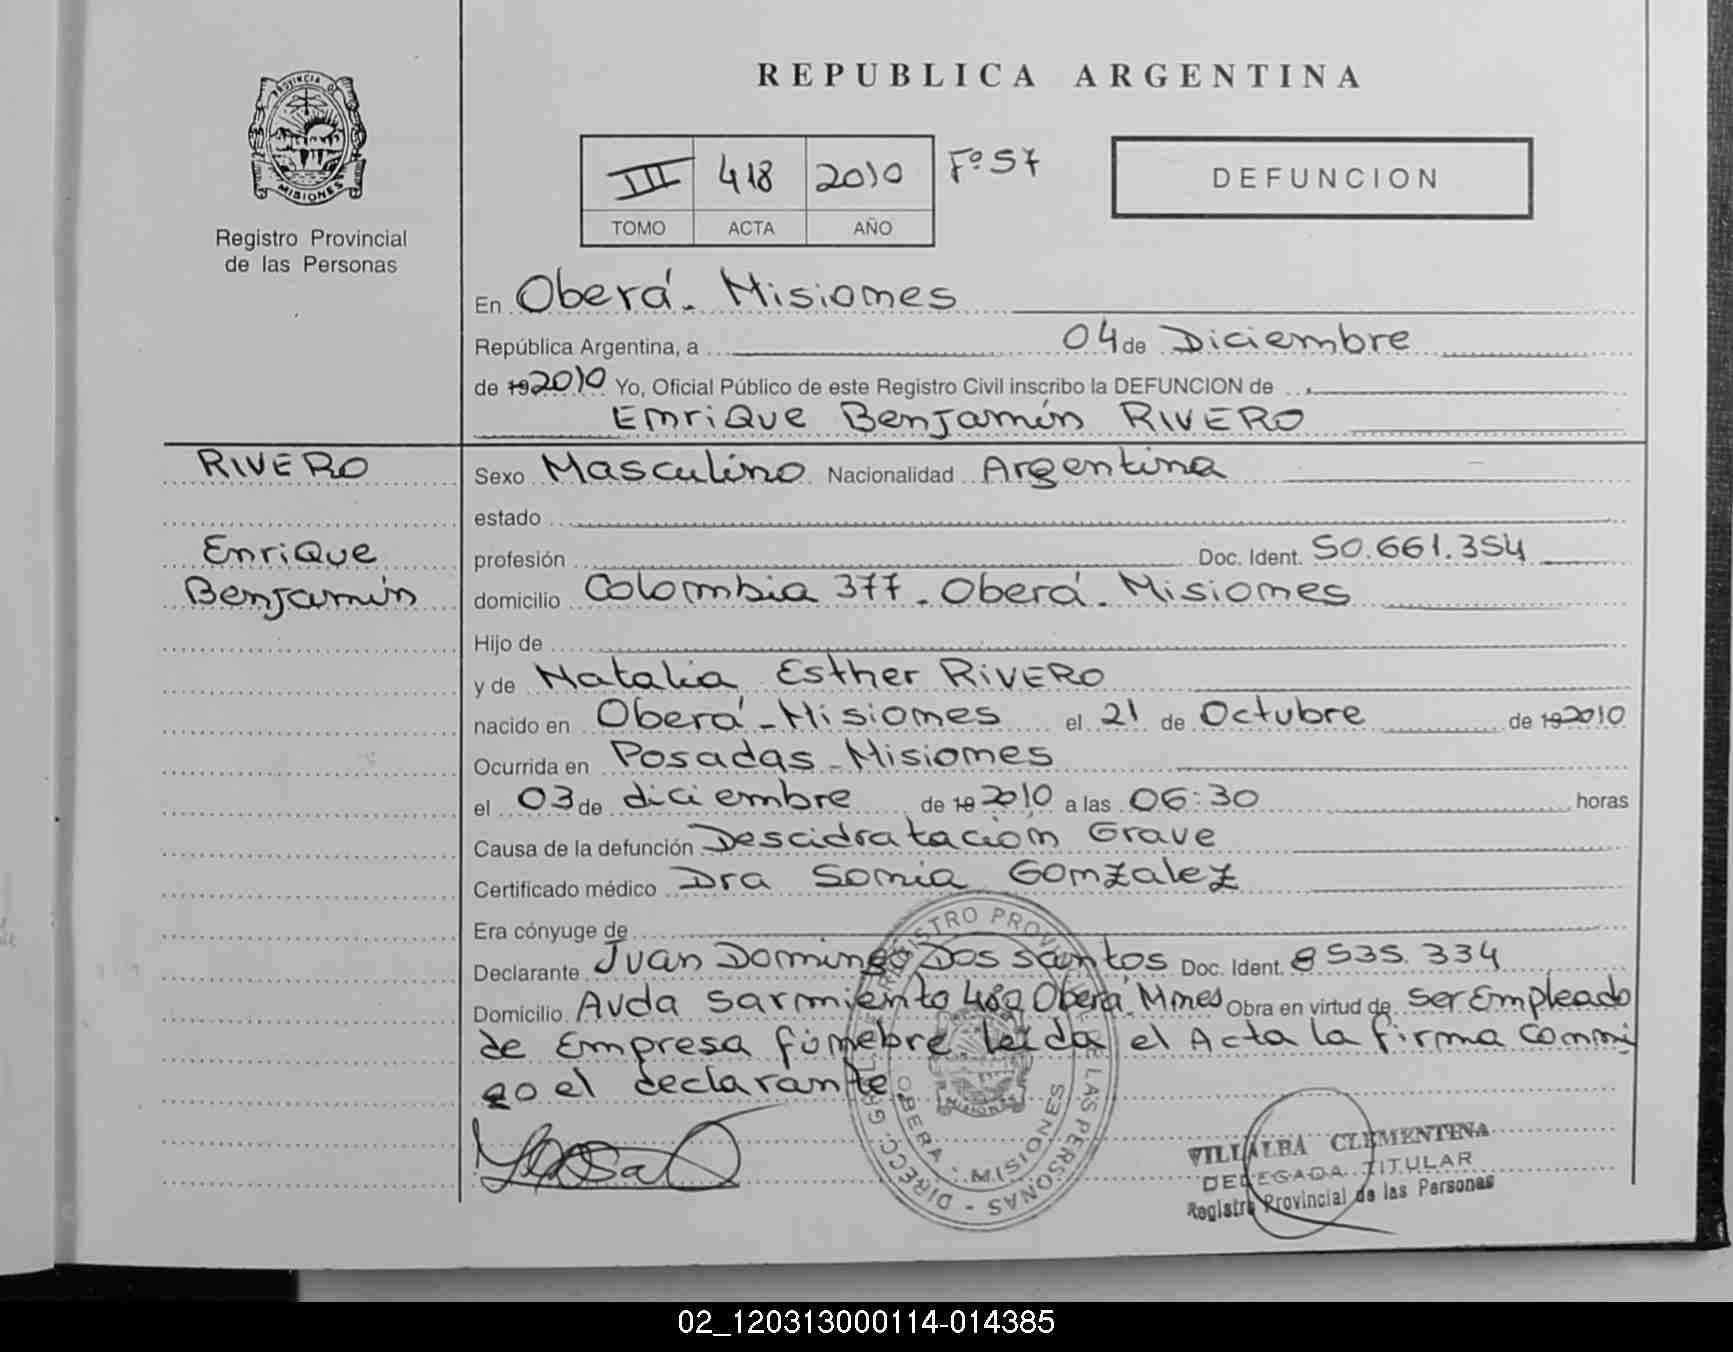 PROVINCIA DE
MISIONES
Registro Provincial
de las Personas
REPUBLICA ARGENTINA
III 418 2010 Fº 57
TOMO ACTA AÑO
DEFUNCION
En Oberá - Misiones
República Argentina, a 04 de Diciembre
de 19 2010 Yo, Oficial Público de este Registro Civil inscribo la DEFUNCION de
Enrique Benjamín RIVERO
RIVERO
Enrique
Benjamín
Sexo Masculino Nacionalidad Argentina
estado
profesión Doc. Ident. 50.661.354
domicilio Colombia 377 - Oberá - Misiones
Hijo de
y de Natalia Esther RIVERO
nacido en Oberá - Misiones el 21 de Octubre de 19 2010
Ocurrida en Posadas - Misiones
el 03 de diciembre de 19 2010 a las 06:30 horas
Causa de la defunción Descidratación Grave
Certificado médico Dra Sonia Gonzalez
Era cónyuge de
Declarante Juan Domingo Dos santos Doc. Ident. 8535.334
Domicilio Avda Sarmiento 489 Oberá Mnes Obra en virtud de ser Empleado
de Empresa fúnebre leída el Acta la firma conmi
go el declarante
DIRECC. GRAL. DE REGISTRO PROVINCIAL DE LAS PERSONAS -
OBERA - MISIONES
VILLALBA CLEMENTINA
DELEGADA TITULAR
Registro Provincial de las Personas
02_120313000114-014385